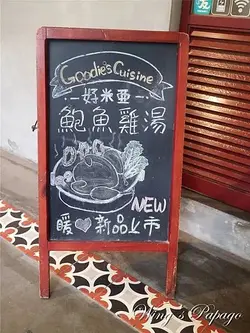 Goodie's Cuisine
好米亞
鮑魚雞湯
NEW
暖♥新品上市
Wing's Papago